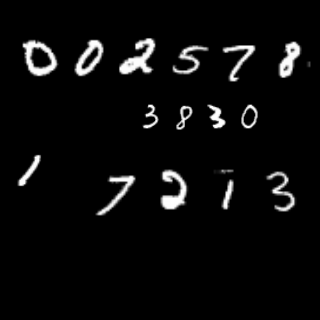 002578
3830
17213